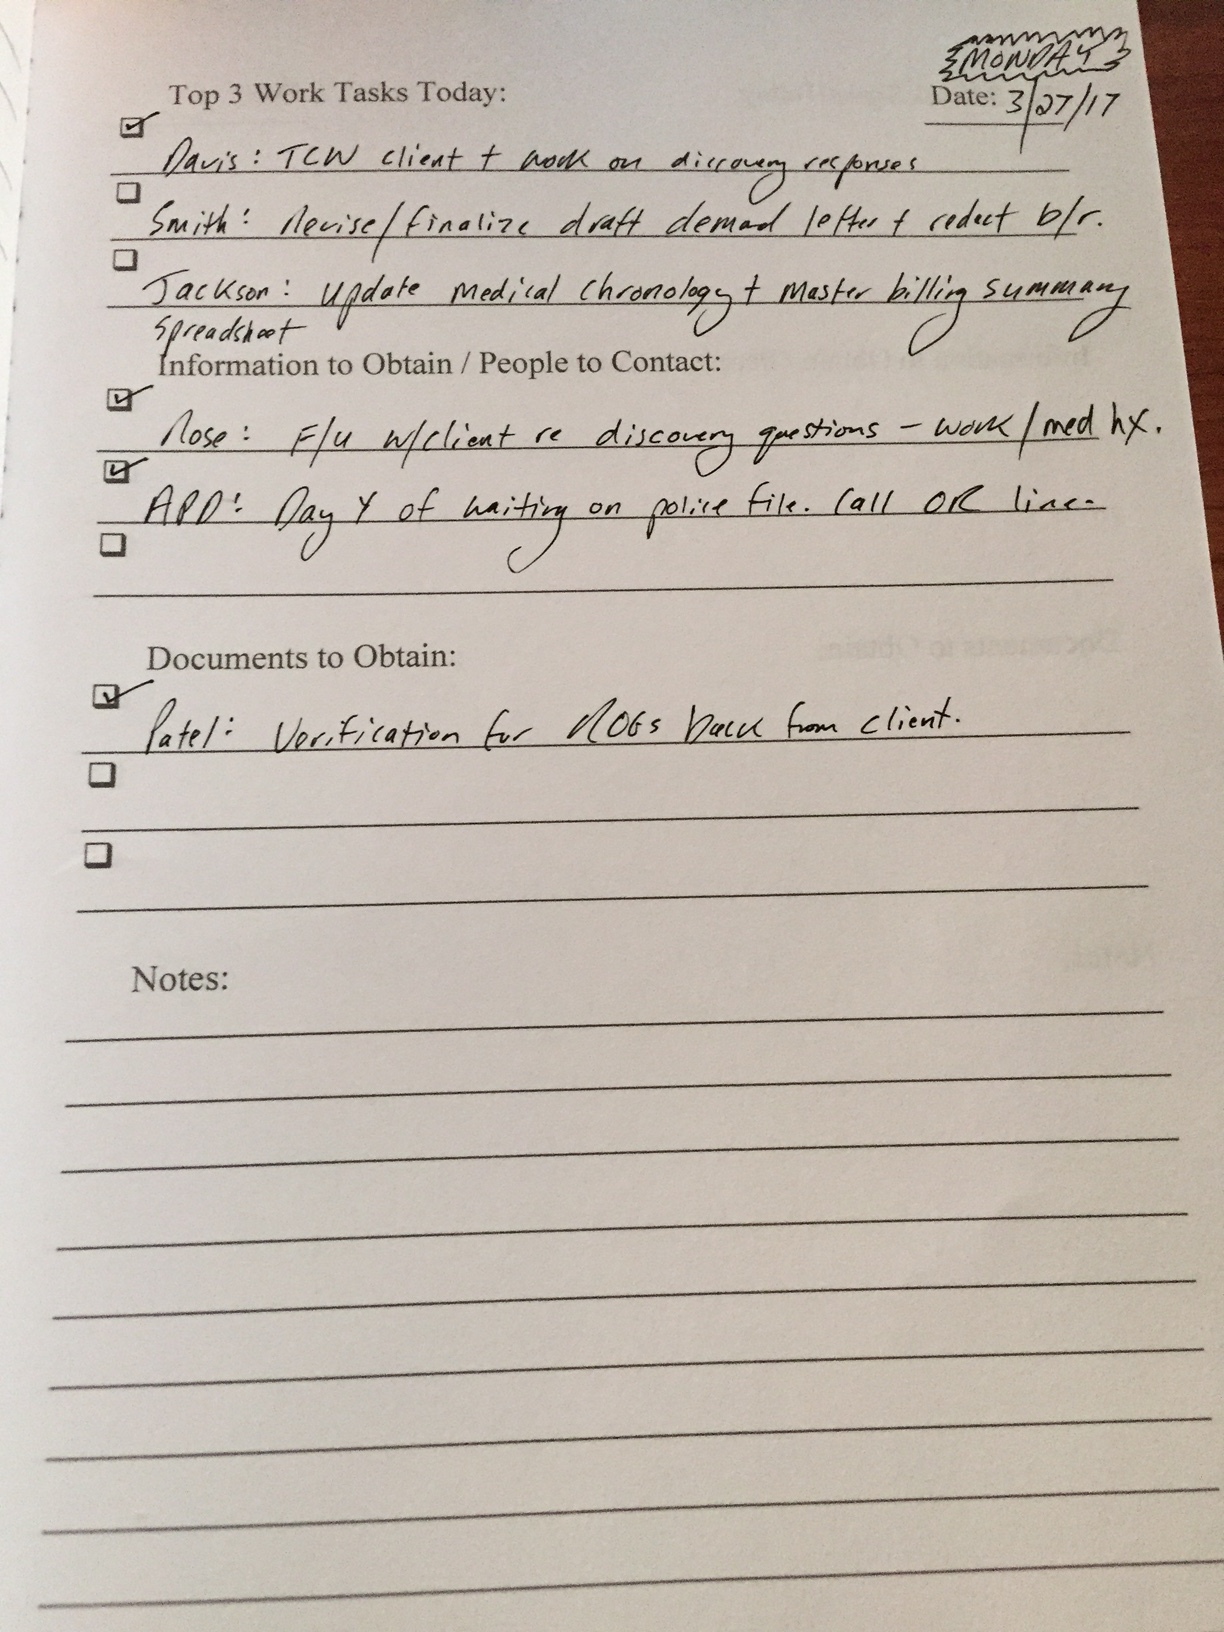 MONDAY
Top 3 Work Tasks Today:
Date: 3/27/17
Davis: TCW client + work on discovery responses
Smith: Revise/finalize draft demand letter + redact b/r.
Jackson: Update medical chronology + master billing summary
spreadsheet
Information to Obtain / People to Contact:
Rose: F/u w/client re discovery questions – work/med hx.
APD: Day 4 of waiting on police file. Call OR line.
Documents to Obtain:
Patel: Verification for ROGs back from client.
Notes: